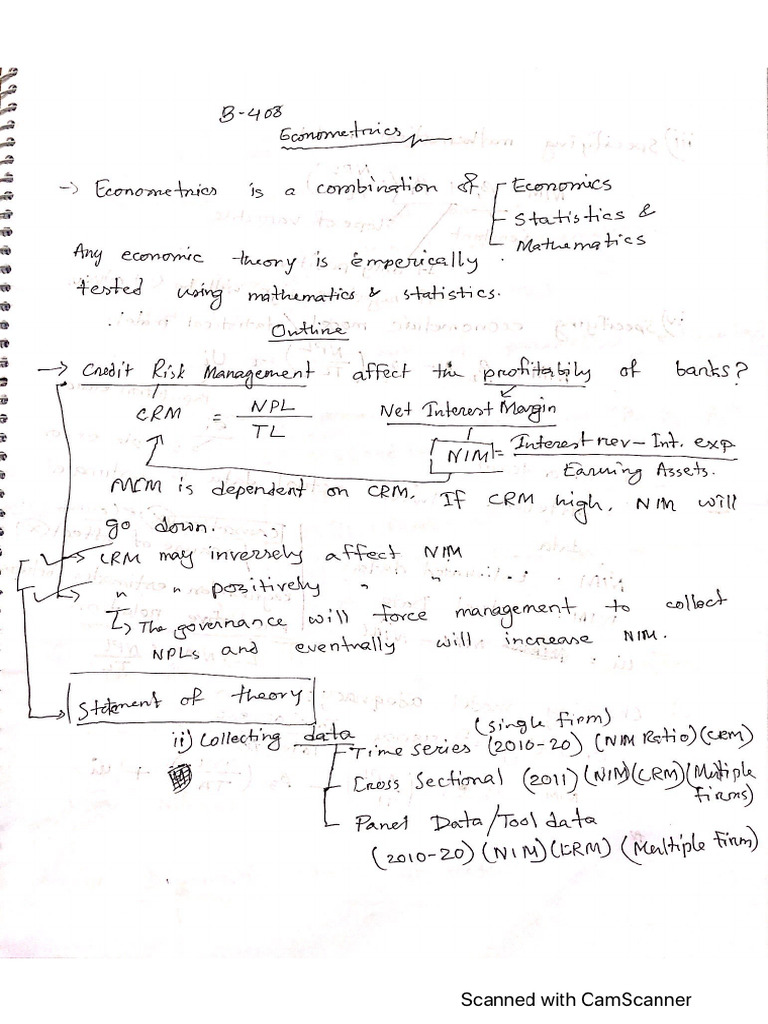 B-408
Econometrics
-> Econometrics is a combination of Economics
Statistics &
Mathematics
Any economic theory is emperically
tested using mathematics & statistics.
Outline
-> Credit Risk Management affect the profitability of banks?
CRM = NPL / TL
Net Interest Margin
NIM = Interest rev - Int. exp / Earning Assets.
is dependent on CRM. If CRM high, NIM will
go down.
-> CRM may inversely affect NIM
" " positively " "
↳ The governance will force management to collect
NPLs and eventrally will increase NIM.
Statement of theory
ii) Collecting data
Time series (2010-20) (NIM Ratio) (CRM)
(single firm)
Cross Sectional (2011) (NIM) (CRM) (Multiple
firms)
Panel Data/Tool data
(2010-20) (NIM) (CRM) (Multiple firm)
Scanned with CamScanner